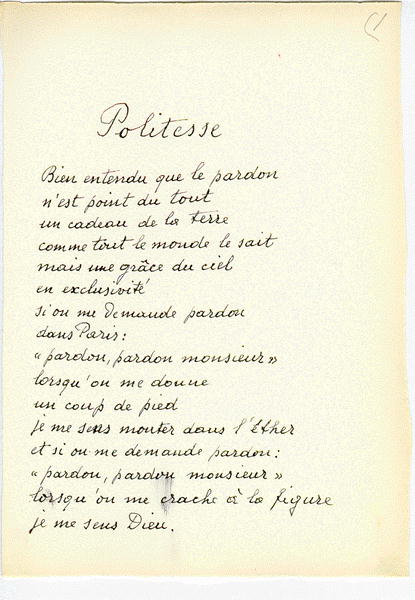 Politesse
Bien entendu que le pardon
n'est point du tout
un cadeau de la terre
comme tout le monde le sait
mais une grâce du ciel
en exclusivité
si on me demande pardon
dans Paris:
« pardon, pardon monsieur »
lorsqu'on me donne
un coup de pied
je me sens monter dans l'Ether
et si on me demande pardon:
« pardon, pardon monsieur »
lorsqu'on me crache à la figure
je me sens Dieu.